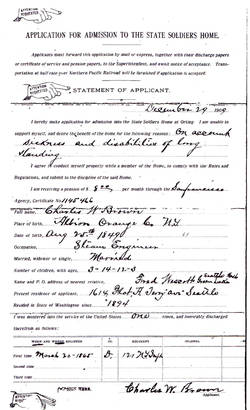 APPLICATION FOR ADMISSION TO THE STATE SOLDIERS HOME.
Applicants must forward this application by mail or express, together with their discharge papers
or certificate of service and pension papers, to the Superintendent, and await notice of acceptance. Trans-
portation at half rate over Northern Pacific Railroad will be furnished if application is accepted.
STATEMENT OF APPLICANT.
December 29
I hereby make application for admission into the State Soldiers Home at Orting. I am unable to
support myself, and desire the benefit of the Home for the following reasons: On account
sickness and disabilities of long
standing
I agree to conduct myself properly while a member of the Home, to comply with the Rules and
Regulations, and submit to the discipline of the said Home.
I am receiving a pension of $ 8 per month through the San Francisco
Agency, Certificate No. 1145466
Full name, Charles W Brown
Place of birth, Albion Orange Co NY
Date of birth, Aug 25th 1849
Occupation, Steam Engineer
Married, widower or single, Married
Number of children, with ages,
Name and P. O. address of nearest relative, Fred
Present residence of applicant, 1614 Seattle
Resided in State of Washington since 1894
I was mustered into the service of the United States one times, and honorably discharged
therefrom as follows:
WHEN AND WHERE ENLISTED
First time March 20-1865 D 121 NY
Second time
Third time
Charles W. Brown